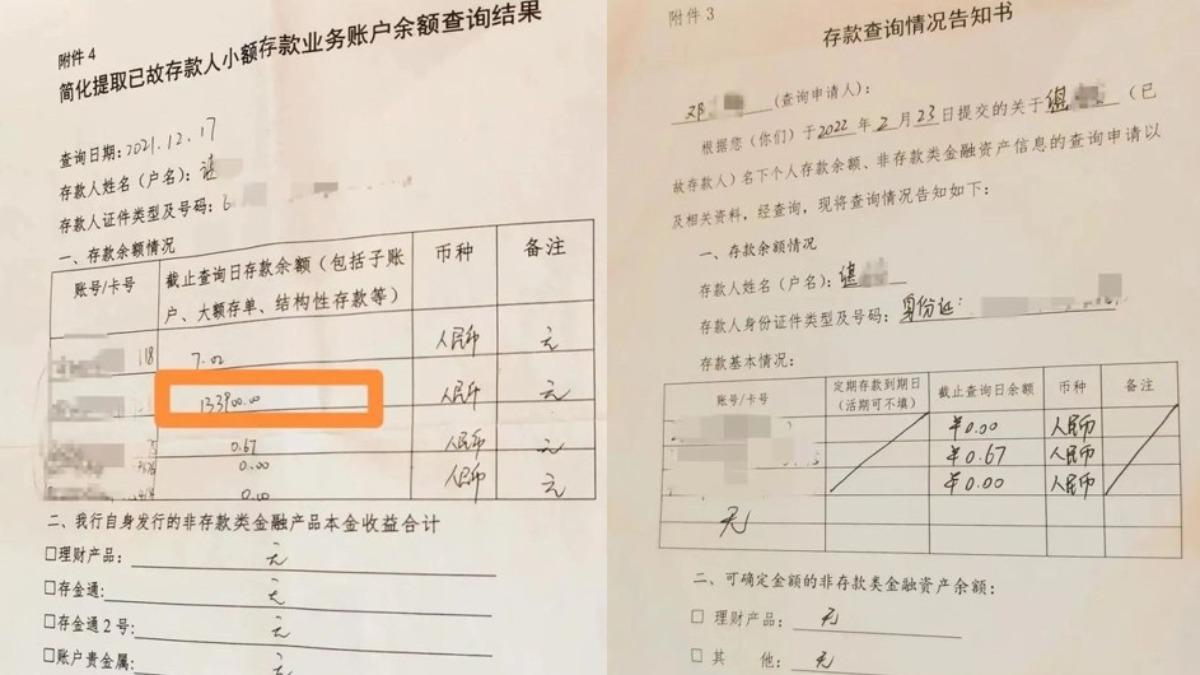 附件4
简化提取已故存款人小额存款业务账户余额查询结果
查询日期:2021.12.17
存款人姓名(户名):谌
存款人证件类型及号码:6
一、存款余额情况
账号/卡号 截止查询日存款余额(包括子账户、大额存单、结构性存款等) 币种 备注
118 7.02 人民币 无
133900.00 人民币 无
0.67 人民币 无
0.00 人民币 无
0.00
二、我行自身发行的非存款类金融产品本金收益合计
□理财产品: 无
□存金通: 无
□存金通2号: 无
□账户贵金属: 无
附件3
存款查询情况告知书
邓 (查询申请人):
根据您(你们)于2022年2月23日提交的关于谌 (已
故存款人)名下个人存款余额、非存款类金融资产信息的查询申请以
及相关资料,经查询,现将查询情况告知如下:
一、存款余额情况
存款人姓名(户名):谌
存款人身份证件类型及号码:身份证:
存款基本情况:
账号/卡号 定期存款到期日(活期可不填) 截止查询日余额 币种 备注
¥0.00 人民币
¥0.67 人民币
¥0.00 人民币
无
二、可确定金额的非存款类金融资产余额:
□ 理财产品: 无
□ 其 他: 无